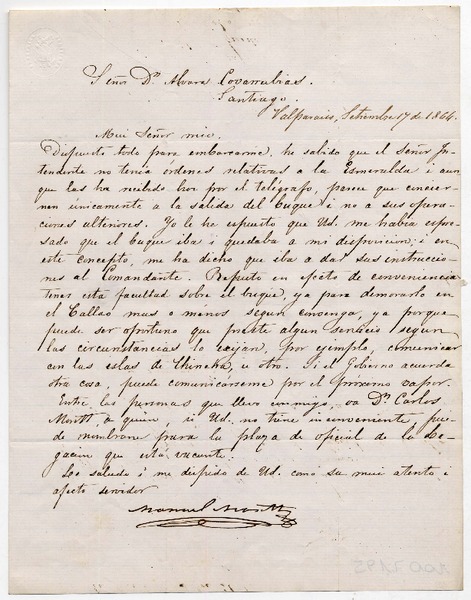 Señor Dn Alvaro Covarrubias.
Santiago.
Valparaiso, Setiembre 17 de 1864.
Mui Señor mio.
Dispuesto todo para embarcarme, he sabido que el Señor In-
tendente no tenia ordenes relativas a la Esmeralda i aun
que las ha recibido hoi por el telégrafo, parece que concier-
nen únicamente a la salida del buque i no a sus opera-
ciones ulteriores. Yo le he espuesto que Ud. me habia espre-
sado que el buque iba i quedaba a mi disposicion, i en
este concepto, me ha dicho que iba a dar sus instruccio-
nes al Comandante. Reputo en efecto de conveniencia
tener esta facultad sobre el buque, ya para demorarlo en
el Callao mas o menos segun convenga, ya porque
puede ser oportuno que preste algun servicio segun
las circunstancias lo exijan, por ejemplo, comunicar
con las islas de Chincha, u otro. Si el Gobierno acuerda
otra cosa, puede comunicárseme por el próximo vapor.
Entre las personas que llevo conmigo, va Dn Carlos
Montt a quien, si Ud. no tiene inconveniente, pue-
de nombrar para la plaza de oficial de la Le-
gacion que está vacante.
Lo saludo i me despido de Ud. como su mui atento i
afecto servidor
Manuel Montt